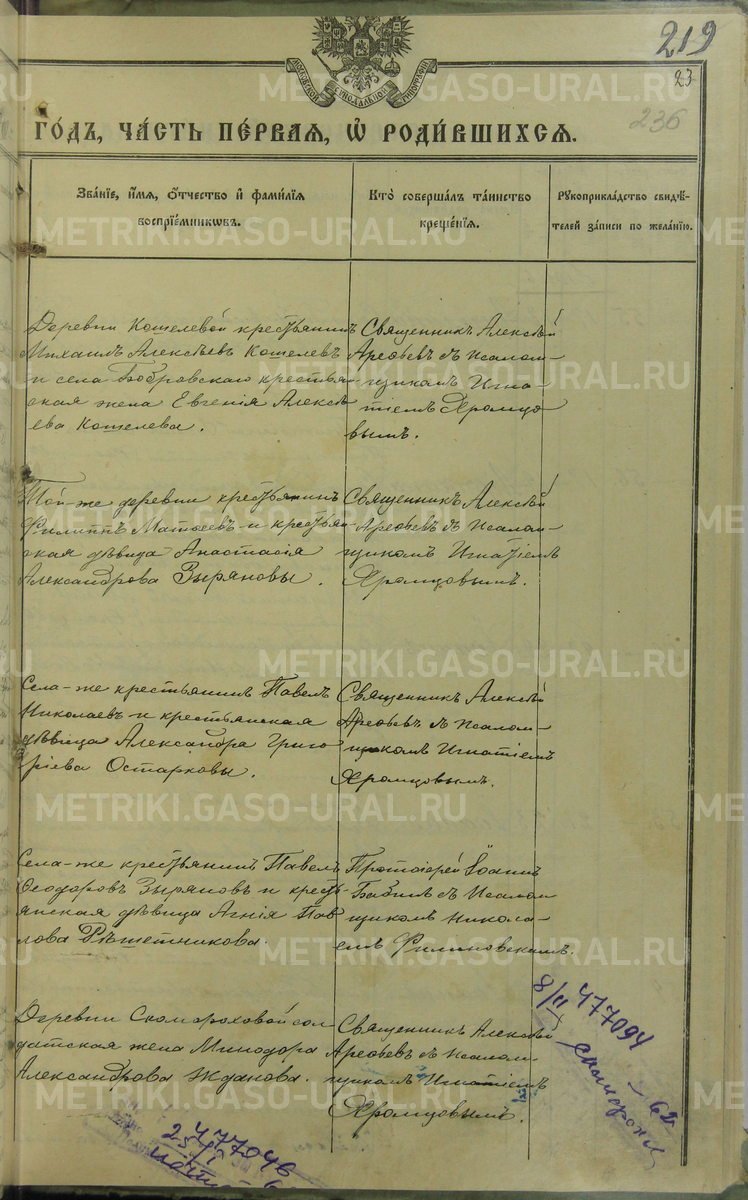 219
23
236
МОСКОВСКОЙ СѴНОДАЛЬНОЙ ТИПОГРАФІИ
METRIKI.GASO-URAL.RU
го́дъ, ча́сть пе́рвая, ѡ҆ роди́вшихсѧ.
Зва́нїе, и҆́мѧ, ѻ҆́тчество и҆ фами́лїѧ
воспрїе́мникѡвъ.
Кто̀ соверша́лъ та́инство
креще́нїѧ.
Рꙋкоприкла́дство свидѣ́-
телей за́писи по жела́нїю.
Деревни Кошелевой крестьянинъ
Михаилъ Алексѣевъ Кошелевъ
и села Бобровскаго крестьян
ская жена Евгенія Алексѣ
ева Кошелева.
Священникъ Алексѣй
Арефьевъ съ псалом-
щикомъ Игна-
тіемъ Хромцо
вымъ.
Той-же деревни крестьянинъ
Филиппъ Матѳеевъ и крестьян
ская дѣвица Анастасія
Александрова Зыряновы.
Священникъ Алексѣй
Арефьевъ съ псалом-
щикомъ Игнатіемъ
Хромцовымъ.
Села-же крестьянинъ Павелъ
Николаевъ и крестьянская
дѣвица Александра Григо
ріева Остарковы.
Священникъ Алексѣй
Арефьевъ съ псалом-
щикомъ Игнатіемъ
Хромцовымъ.
Села-же крестьянинъ Павелъ
Ѳеодоровъ Зыряновъ и кресть-
янская дѣвица Агнія Пав
лова Рѣшетникова.
Протоіерей Іоаннъ
съ псалом
щикомъ Никола-
емъ Филиновскимъ.
Деревни Скомороховой сол
датская жена Минодора
Александрова Жданова.
Священникъ Алексѣй
Арефьевъ съ псалом-
щикомъ Игнатіемъ
Хромцовымъ.
8/II 477094
477046